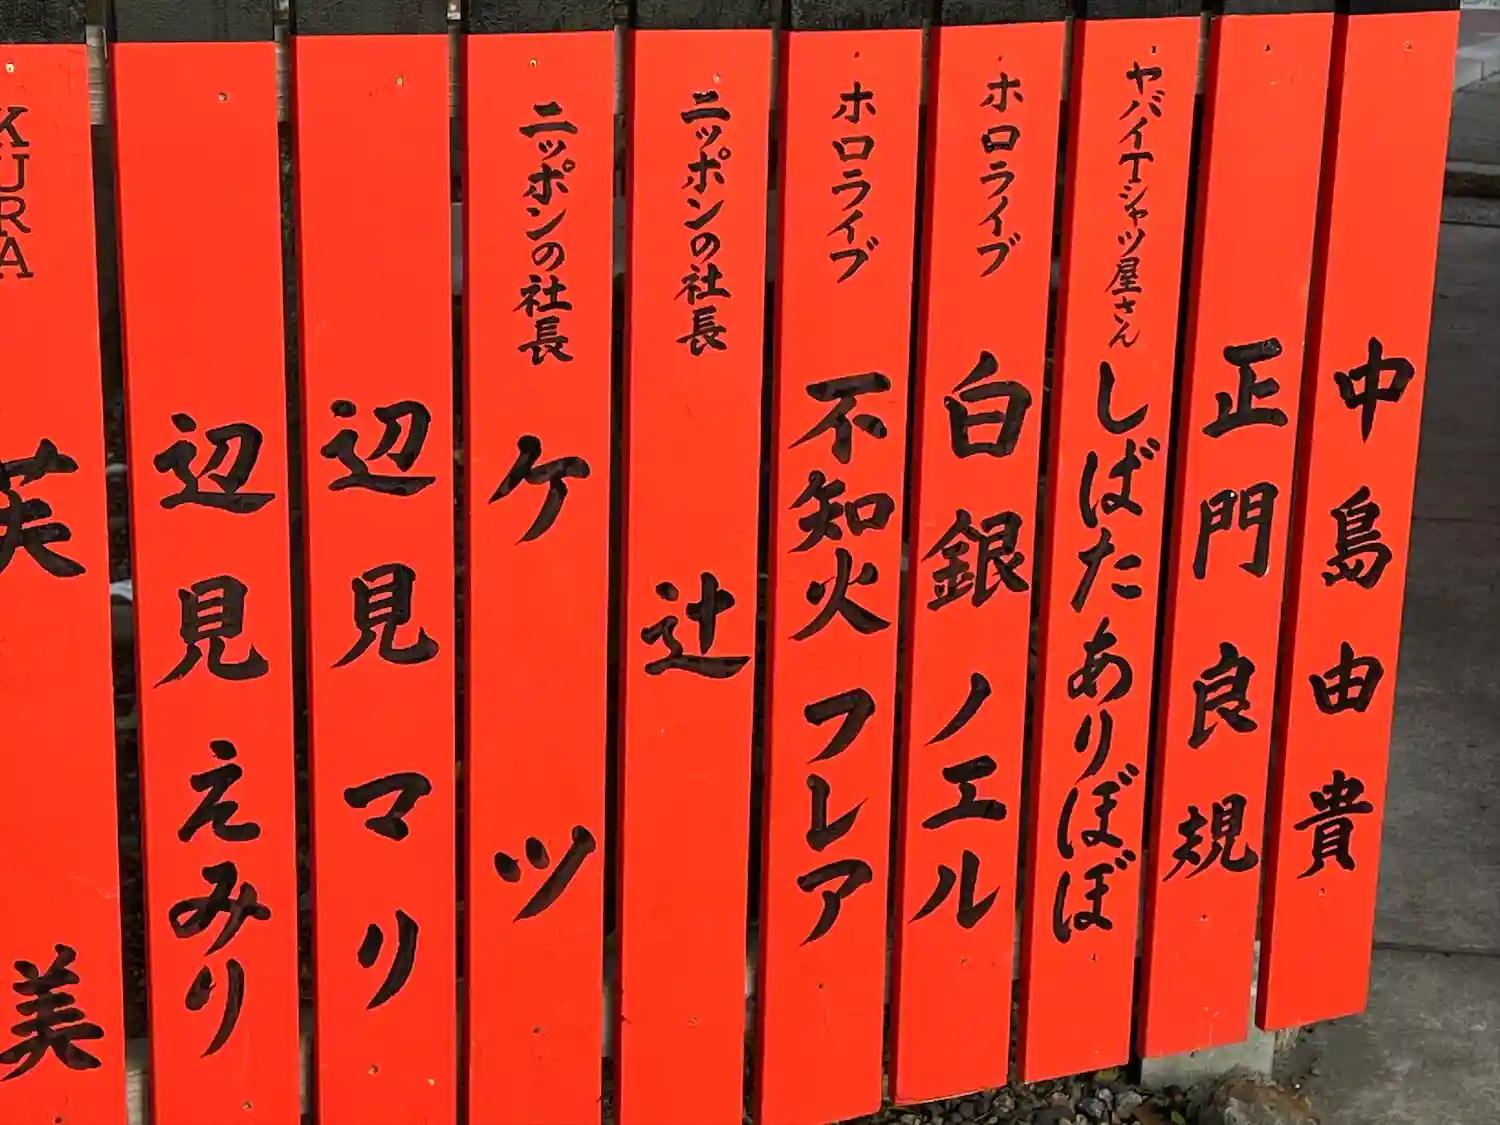 中島由貴
正門良規
ヤバイTシャツ屋さん しばたありぼぼ
ホロライブ 白銀ノエル
ホロライブ 不知火フレア
ニッポンの社長 辻
ニッポンの社長 ケツ
辺見マリ
辺見えみり
KURA 芙美